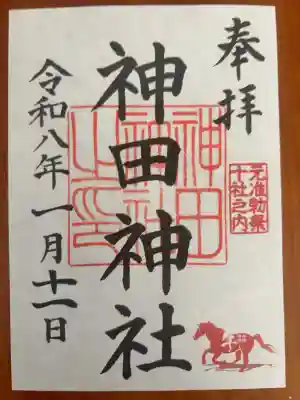 奉拝
元准勅祭
十社之内
神田神社
神田神社之印
令和八年一月十一日